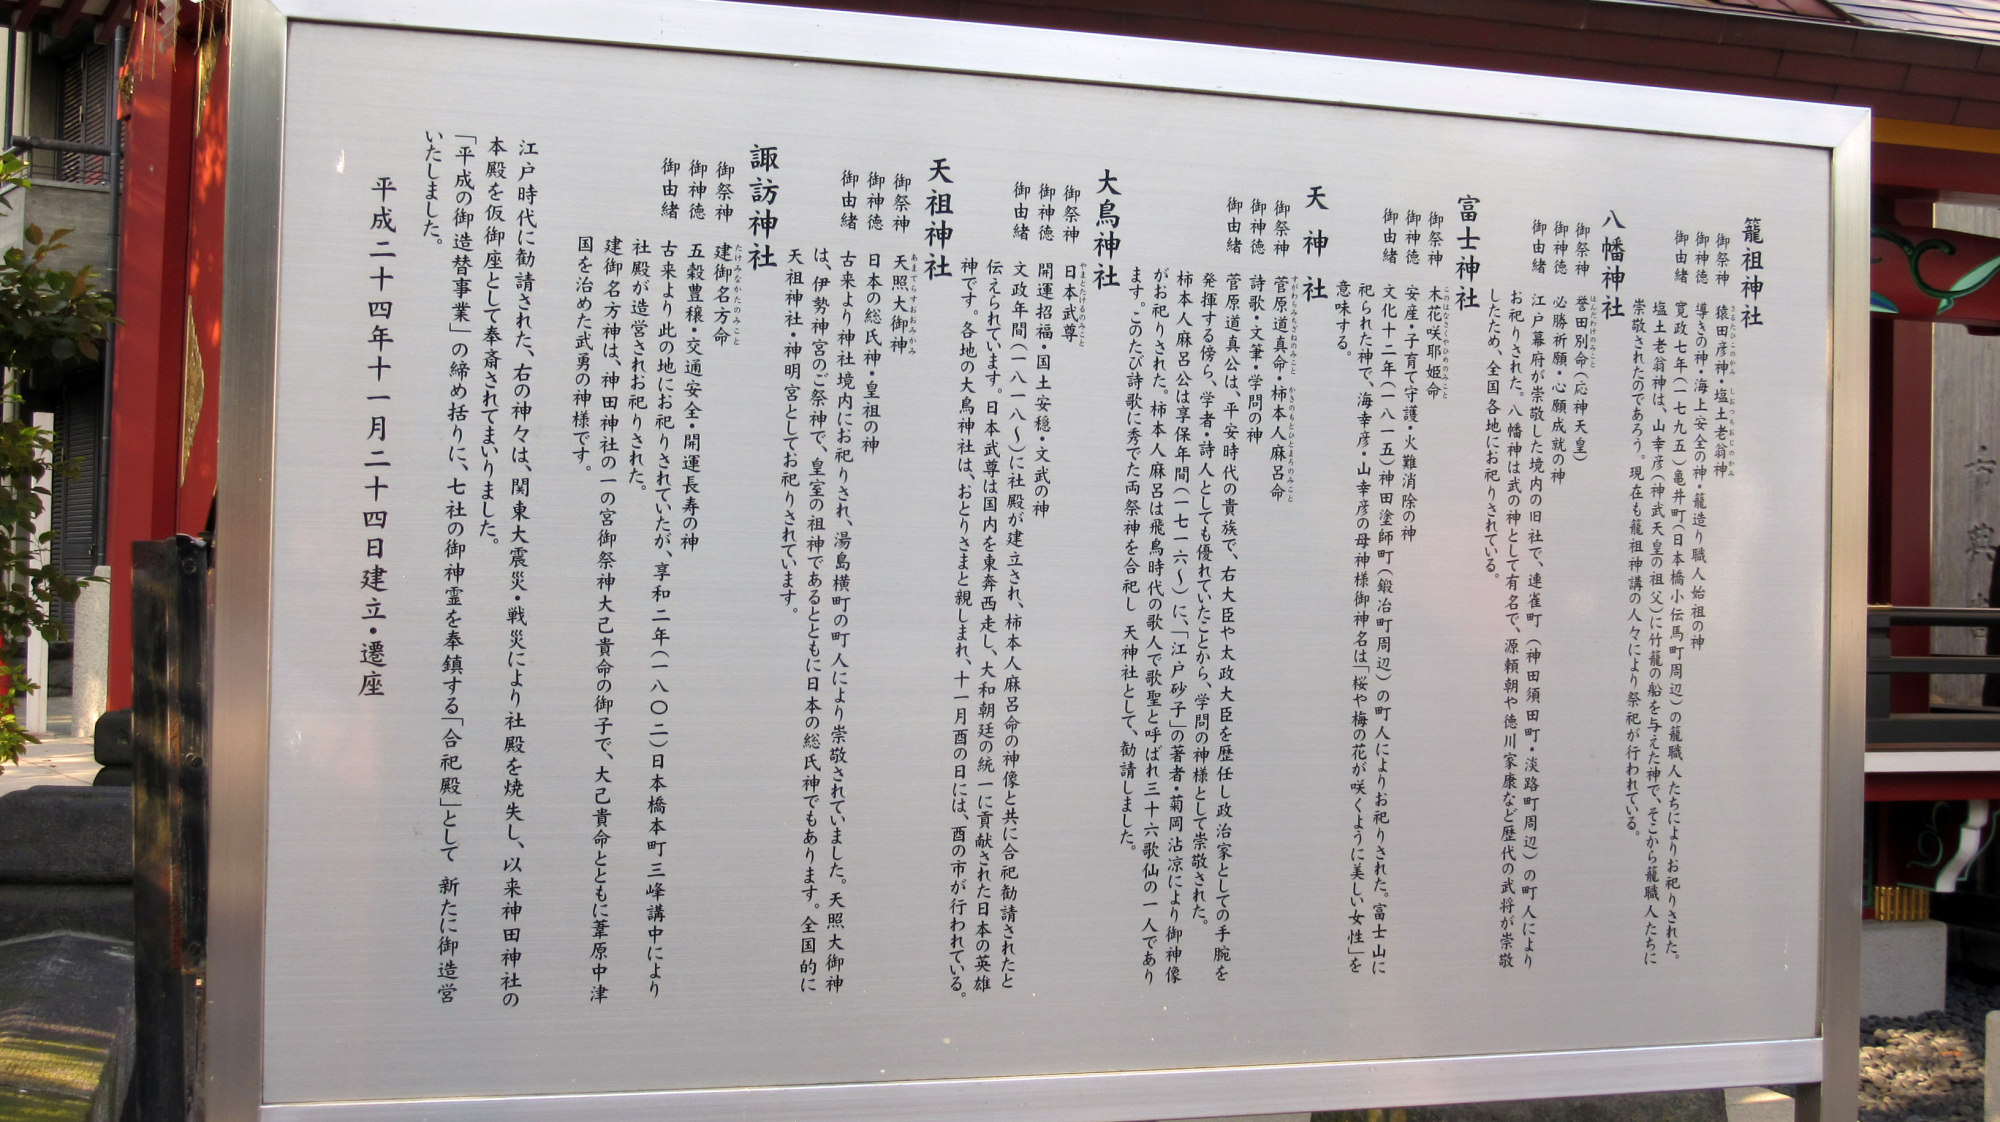 籠祖神社
御祭神　猿田彦神・塩土老翁神
さるたひこのかみ　しおつちおじのかみ
御神徳　導きの神・海上安全の神・籠造り職人始祖の神
御由緒　寛政七年（一七九五）亀井町（日本橋小伝馬町周辺）の籠職人たちによりお祀りされた。
塩土老翁神は、山幸彦（神武天皇の祖父）に竹籠の船を与えた神で、そこから籠職人たちに
崇敬されたのであろう。現在も籠祖神講の人々により祭祀が行われている。
八幡神社
御祭神　誉田別命（応神天皇）
ほんだわけのみこと
御神徳　必勝祈願・心願成就の神
御由緒　江戸幕府が崇敬した境内の旧社で、連雀町（神田須田町・淡路町周辺）の町人により
お祀りされた。八幡神は武の神として有名で、源頼朝や徳川家康など歴代の武将が崇敬
したため、全国各地にお祀りされている。
富士神社
御祭神　木花咲耶姫命
このはなさくやひめのみこと
御神徳　安産・子育て守護・火難消除の神
御由緒　文化十二年（一八一五）神田塗師町（鍛冶町周辺）の町人によりお祀りされた。富士山に
祀られた神で、海幸彦・山幸彦の母神様御神名は「桜や梅の花が咲くように美しい女性」を
意味する。
天神社
御祭神　菅原道真命・柿本人麻呂命
すがわらみちざねのみこと　かきのもとひとまろのみこと
御神徳　詩歌・文筆・学問の神
御由緒　菅原道真公は、平安時代の貴族で、右大臣や太政大臣を歴任し政治家としての手腕を
発揮する傍ら、学者・詩人としても優れていたことから、学問の神様として崇敬された。
柿本人麻呂公は享保年間（一七一六～）に、「江戸砂子」の著者・菊岡沾凉により御神像
がお祀りされた。柿本人麻呂は飛鳥時代の歌人で歌聖と呼ばれ三十六歌仙の一人であり
ます。このたび詩歌に秀でた両祭神を合祀し 天神社として、勧請しました。
大鳥神社
御祭神　日本武尊
やまとたけるのみこと
御神徳　開運招福・国土安穏・文武の神
御由緒　文政年間（一八一八～）に社殿が建立され、柿本人麻呂命の神像と共に合祀勧請されたと
伝えられています。日本武尊は国内を東奔西走し、大和朝廷の統一に貢献された日本の英雄
神です。各地の大鳥神社は、おとりさまと親しまれ、十一月酉の日には、酉の市が行われている。
天祖神社
御祭神　天照大御神
あまてらすおおみかみ
御神徳　日本の総氏神・皇祖の神
御由緒　古来より神社境内にお祀りされ、湯島横町の町人により崇敬されていました。天照大御神
は、伊勢神宮のご祭神で、皇室の祖神であるとともに日本の総氏神でもあります。全国的に
天祖神社・神明宮としてお祀りされています。
諏訪神社
御祭神　建御名方命
たけみなかたのみこと
御神徳　五穀豊穣・交通安全・開運長寿の神
御由緒　古来より此の地にお祀りされていたが、享和二年（一八〇二）日本橋本町三峰講中により
社殿が造営されお祀りされた。
建御名方神は、神田神社の一の宮御祭神大己貴命の御子で、大己貴命とともに葦原中津
国を治めた武勇の神様です。
江戸時代に勧請された、右の神々は、関東大震災・戦災により社殿を焼失し、以来神田神社の
本殿を仮御座として奉斎されてまいりました。
「平成の御造替事業」の締め括りに、七社の御神霊を奉鎮する「合祀殿」として 新たに御造営
いたしました。
平成二十四年十一月二十四日建立・遷座